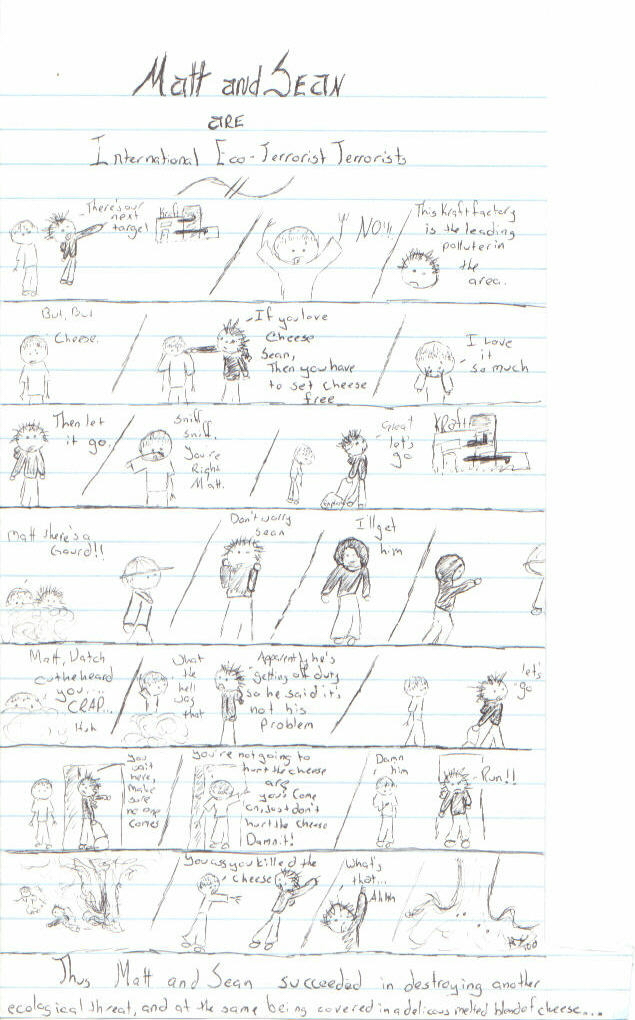 Matt and Sean
are
International Eco-Terrorist Terrorists
There's our
next
target
Kraft
NO!!
This Kraft factory
is the leading
polluter in
the
area.
But, But
Cheese.
If you love
Cheese
Sean,
Then you have
to set cheese
free
I love
it
so much
Then let
it go.
sniff
sniff.
You're
Right
Matt.
Great
let's
go
Kraft
Matt there's a
Gaurd!!
Don't worry
Sean
I'll get
him
Matt, Watch
out he heard
you....
CRAP...
What
the
hell
was
that
Apparently he's
getting off duty
so he said it's
not his
Problem
let's
go
you
wait
here,
make
sure
no one
comes
you're not going to
hurt the cheese
are
you? Come
on, just don't
hurt the cheese
Damn it!
Damn
him
Run!!
You ass you killed the
cheese
What's
that...
Ahhh
Thus Matt and Sean succeeded in destroying another
ecological threat, and at the same being covered in a delicous melted blend of cheese....